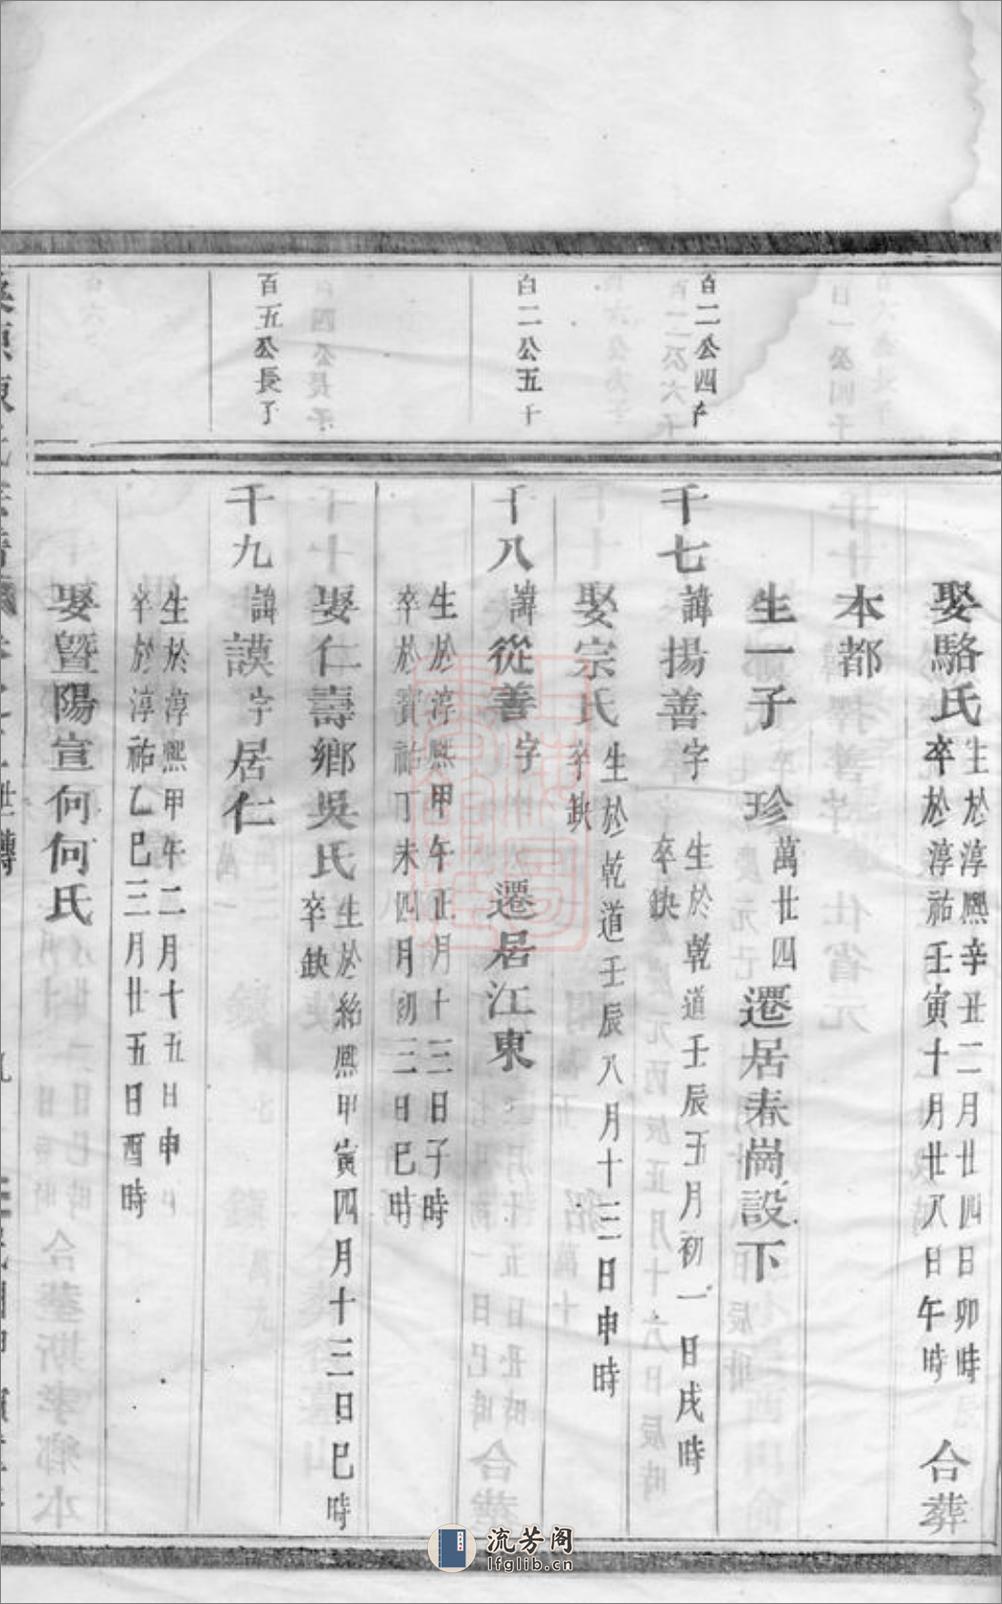 娶駱氏 生於淳熙辛丑二月廿四日卯時 卒於淳祐壬寅十月廿八日午時 合葬
本都
生一子 珍 萬廿四 遷居春崗設下
百二公四子
千七 諱揚善字 生於乾道壬辰五月初一日戌時 卒缺
娶宗氏 生於乾道壬辰八月十三日申時 卒缺
百二公五子
千八 諱從善字 遷居江東
生於淳熙甲午正月十三日子時 卒於寶祐丁未四月初三日巳時
娶仁壽鄉吳氏 生於紹熙甲寅四月十三日巳時 卒缺
百五公長子
千九 諱謨字居仁
生於淳熙甲午二月十五日申時 卒於淳祐乙巳三月廿五日酉時
娶暨陽宣何何氏
流芳阁
lfglib.cn